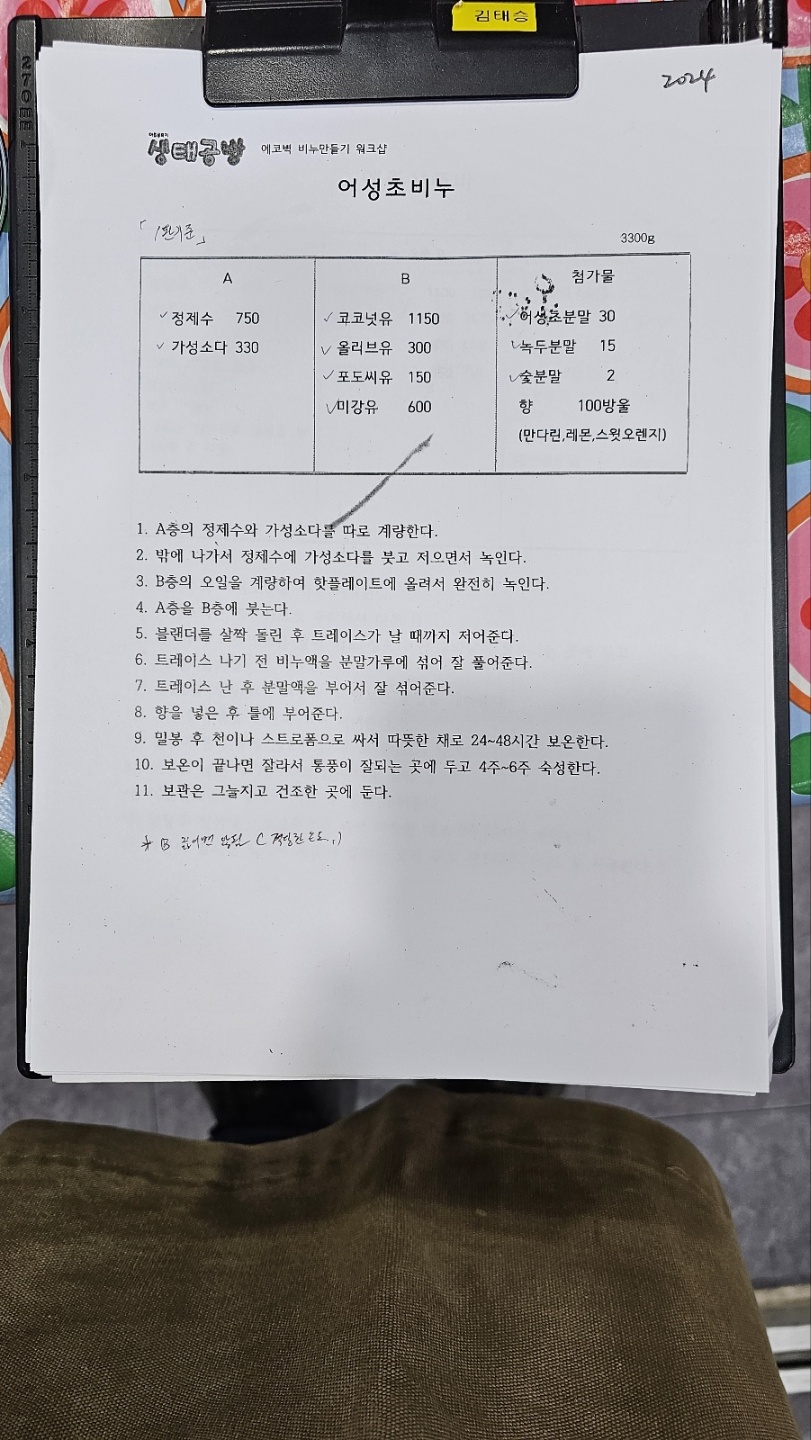 김태승
2024
생태공방 에코벅 비누만들기 워크샵
어성초비누
「1판기준」
3300g
A
정제수 750
가성소다 330
B
코코넛유 1150
올리브유 300
포도씨유 150
미강유 600
첨가물
어성초분말 30
녹두분말 15
숯분말 2
향 100방울
(만다린,레몬,스윗오렌지)
1. A층의 정제수와 가성소다를 따로 계량한다.
2. 밖에 나가서 정제수에 가성소다를 붓고 저으면서 녹인다.
3. B층의 오일을 계량하여 핫플레이트에 올려서 완전히 녹인다.
4. A층을 B층에 붓는다.
5. 블랜더를 살짝 돌린 후 트레이스가 날 때까지 저어준다.
6. 트레이스 나기 전 비누액을 분말가루에 섞어 잘 풀어준다.
7. 트레이스 난 후 분말액을 부어서 잘 섞어준다.
8. 향을 넣은 후 틀에 부어준다.
9. 밀봉 후 천이나 스트로폼으로 싸서 따뜻한 채로 24~48시간 보온한다.
10. 보온이 끝나면 잘라서 통풍이 잘되는 곳에 두고 4주~6주 숙성한다.
11. 보관은 그늘지고 건조한 곳에 둔다.
※ B 끓이면 안됨 ( 적당한 온도.)